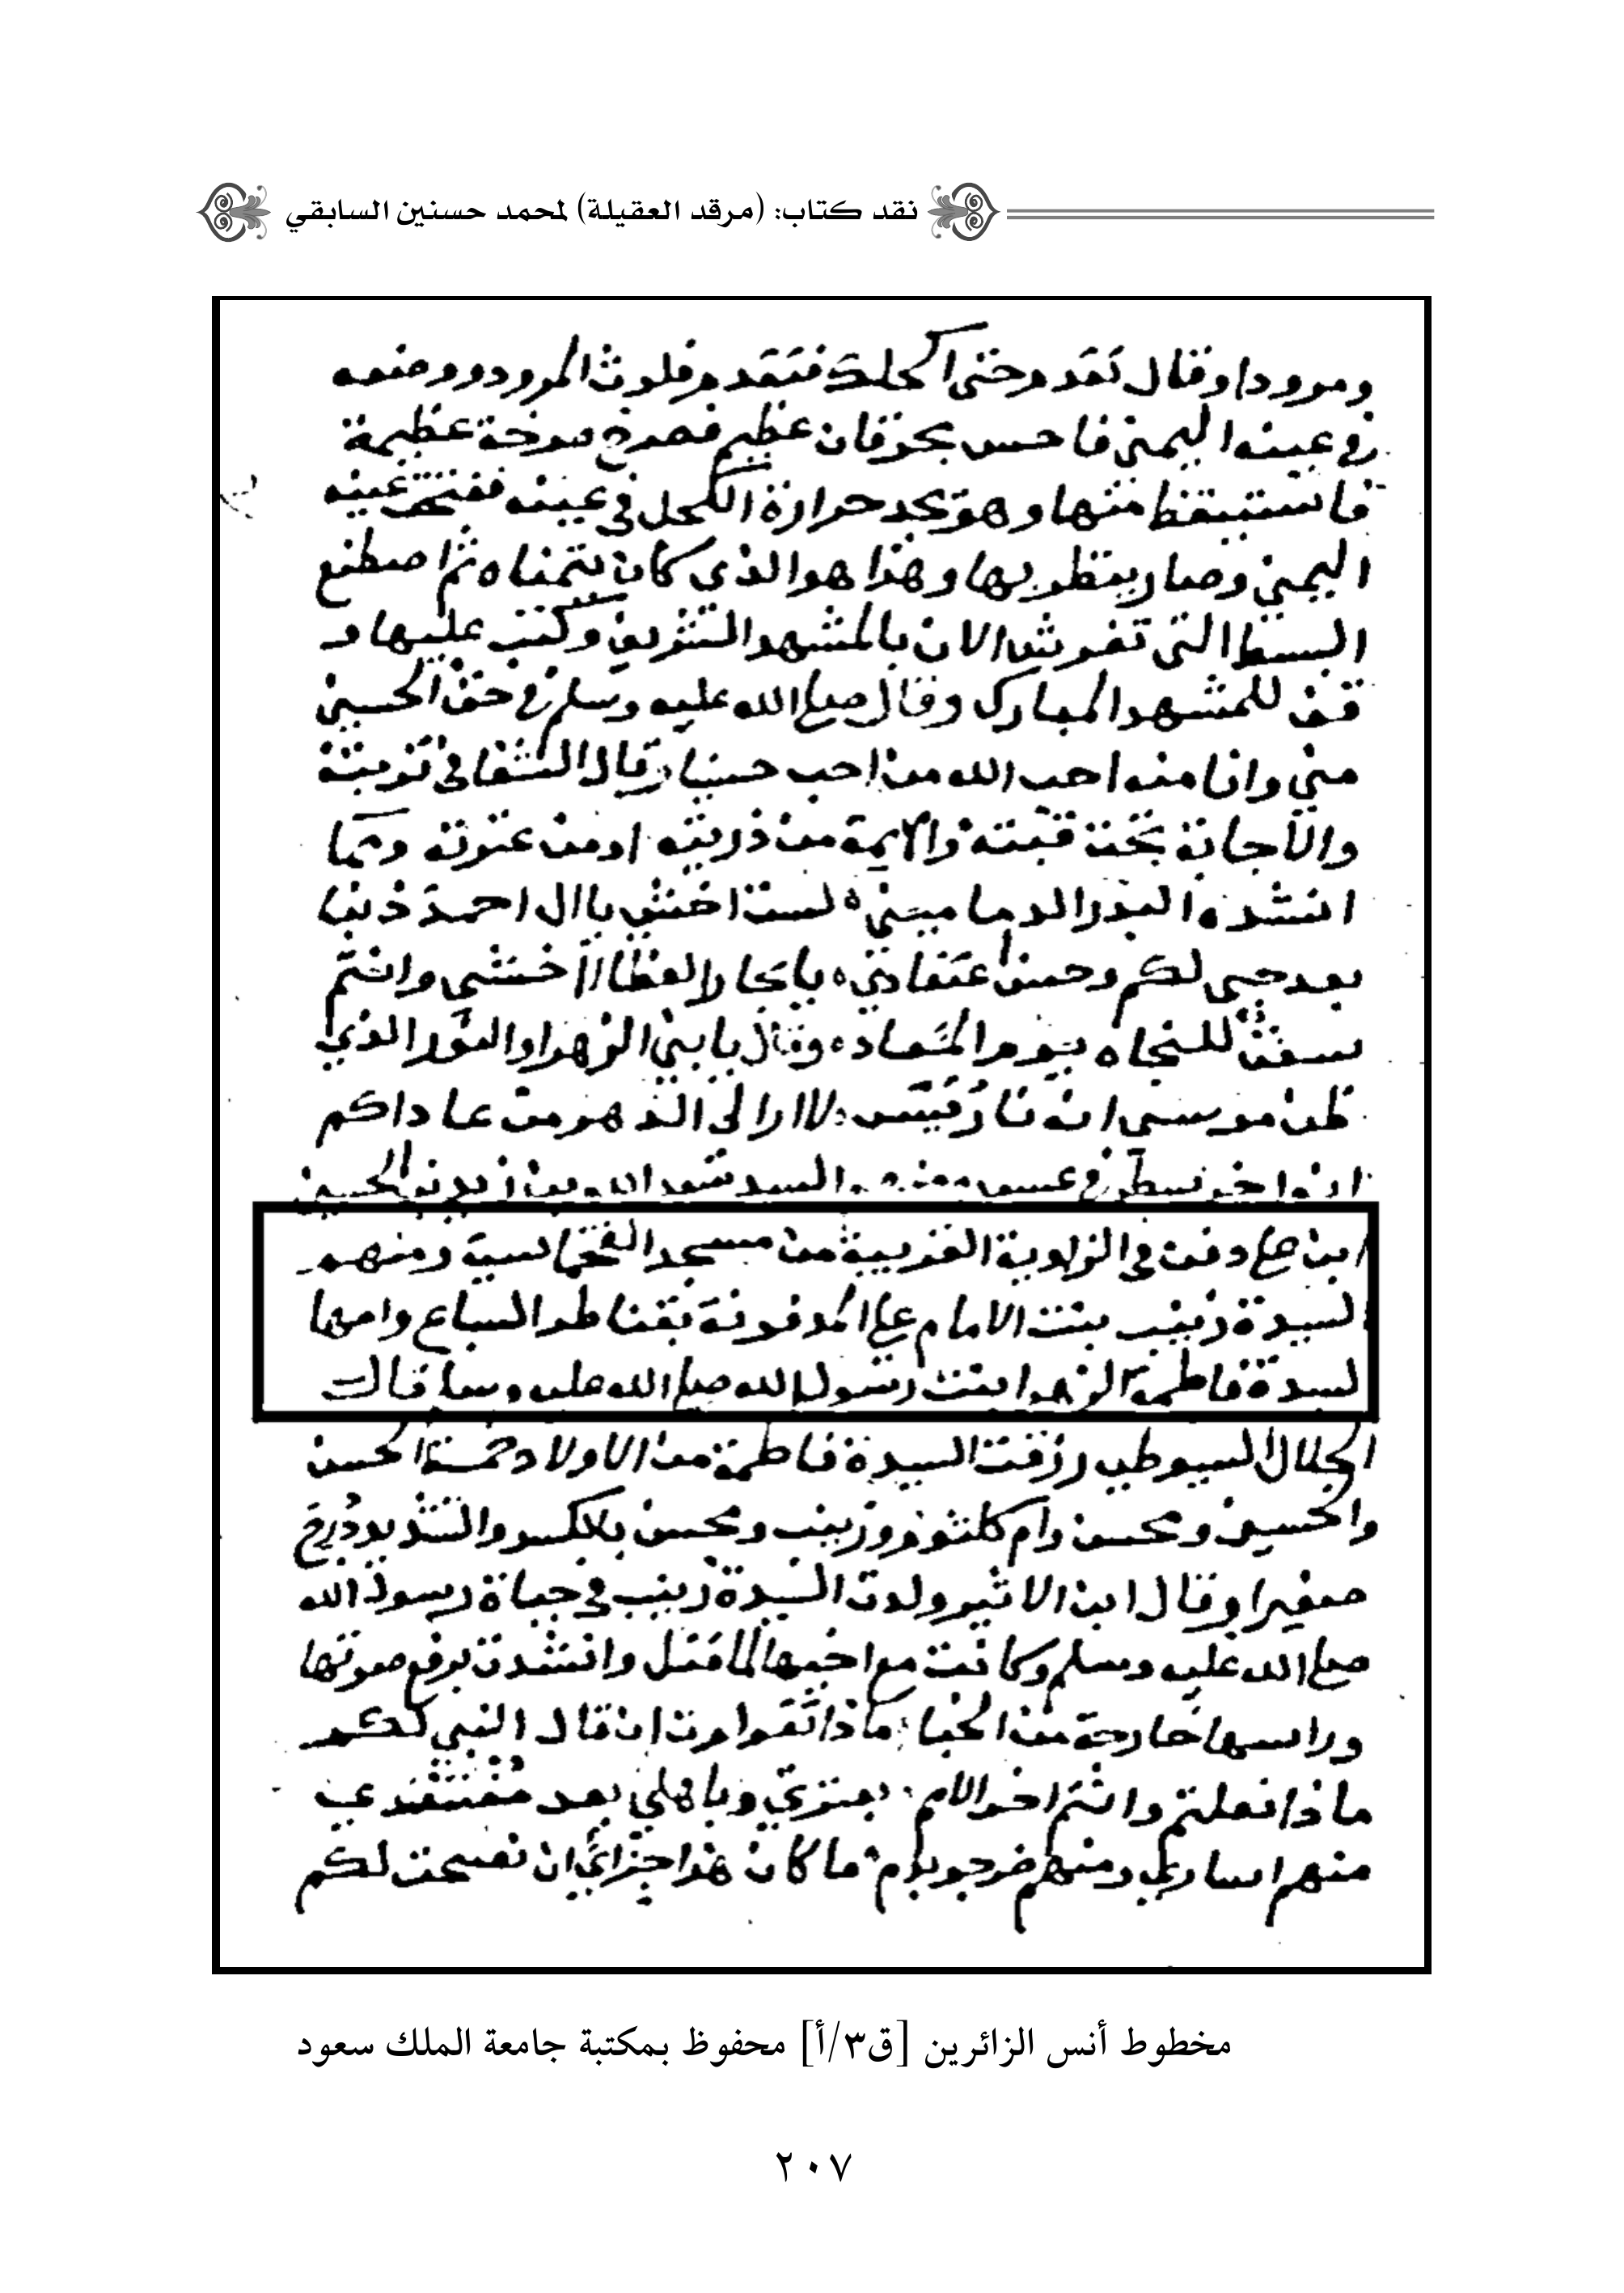 نقد كتاب: (مرقد العقيلة) لمحمد حسنين السابقي
ومرودا وقال تقدم حتى اكحلك فتقدم فلوث المرود ووضعه
في عينه اليمنى فاحس بحرقان عظيم فصرخ صرخة عظيمة
فاستيقظ منها وهو يجد حرارة الكحل في عينه ففتحت عينه
اليمنى وصار ينظر بها وهذا هو الذي كان يتمناه ثم اصطنع
البسط التي تفرش الان بالمشهد الشريف وكتب عليها و
قف للمشهد المبارك وقال صلى الله عليه وسلم في حق الحسين
مني وانا منه احب الله من احب حسينا وقال الشفا في تربته
والاجابة تحت قبته والايمة من ذريته او من عترته ومما
انشده البدر الدماميني لست اخشى يا ال احمد ذنبا
بعد حبي لكم وحسن اعتقادي يا بحار العطا اأخشى وانتم
سفن للنجاه يوم المعاد وقال يا بني الزهرا والنور الذي
ظن موسى انه نار قبس لا اوالي الدهر من عاداكم
انه اخر سطر في عبس ومنهم السيد بن زيد بن الحسين
ابن علي دفن في الزاوية الغربية من مسجد ومنهم
السيدة زينب بنت الامام علي المدفونة بقناطر السباع وامها
لسيدة فاطمة الزهرا بنت رسول الله صلى الله عليه وسلم قال
الجلال السيوطي رزقت السيدة فاطمة من الاولاد خمسة الحسن
والحسين ومحسن وام كلثوم وزينب ومحسن بالكسر والتشديد درج
صغيرا وقال ابن الاثير ولدت السيدة زينب في حياة رسول الله
صلى الله عليه وسلم وكانت مع اخيها لما قتل وانشدت برفع صوتها
وراسها خارجة من الخبا ماذا تقولون ان قال النبي لكم
ماذا فعلتم وانتم اخر الامم بعترتي وباهلي بعد مفتقدي
منهم اسارى ومنهم ضرجو بدم ما كان هذا جزائي ان نصحت لكم
مخطوط أنس الزائرين [ق٣/أ] محفوظ بمكتبة جامعة الملك سعود
٢٠٧